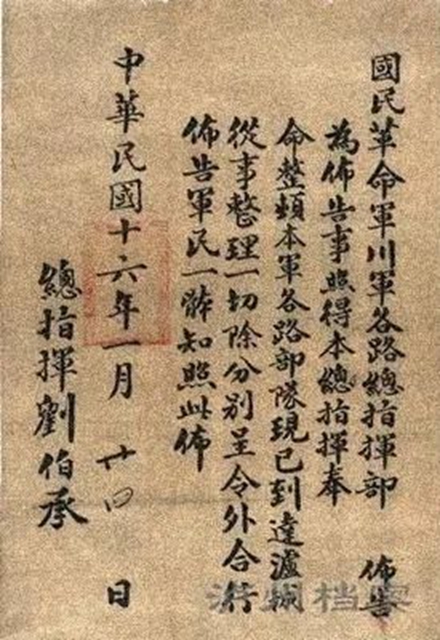 國民革命軍川軍各路總指揮部 佈告
為佈告事照得本總指揮奉
命整頓本軍各路部隊現已到達瀘城
從事整理一切除分別呈令外合行
佈告軍民一體知照此佈
中華民國十六年一月廿四日
總指揮劉伯承
泸州档案